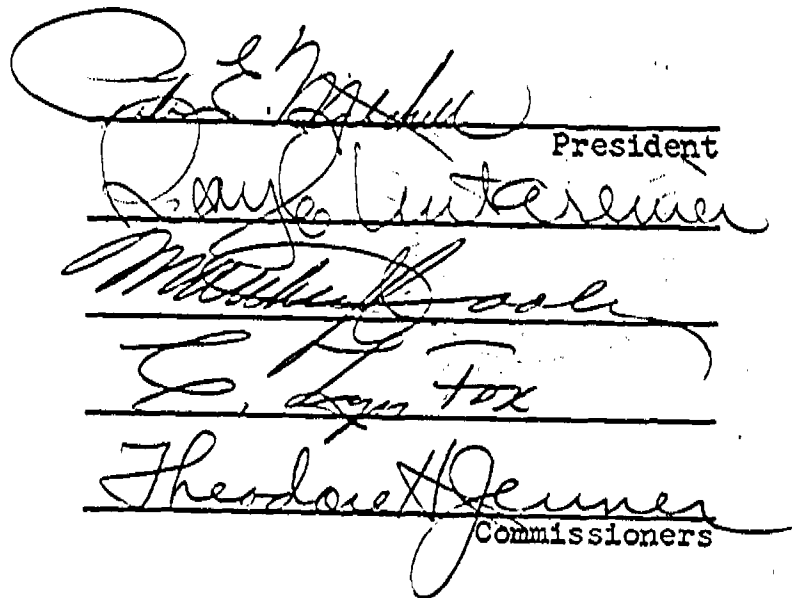 Peter E. Mitchell
President
Ray E. Untereiner
Matthew J. Dooley
C. Lyn Fox
Theodore H. Jenner
Commissioners